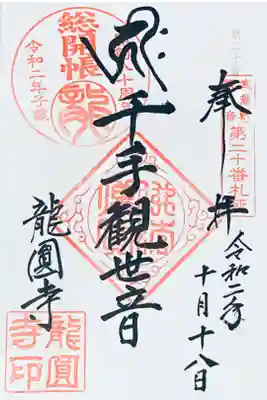 奉拝
令和二年
十月十八日
第二十番札所
千手観世音
総開帳
令和二年子歳
龍圓寺
龍圓
寺印